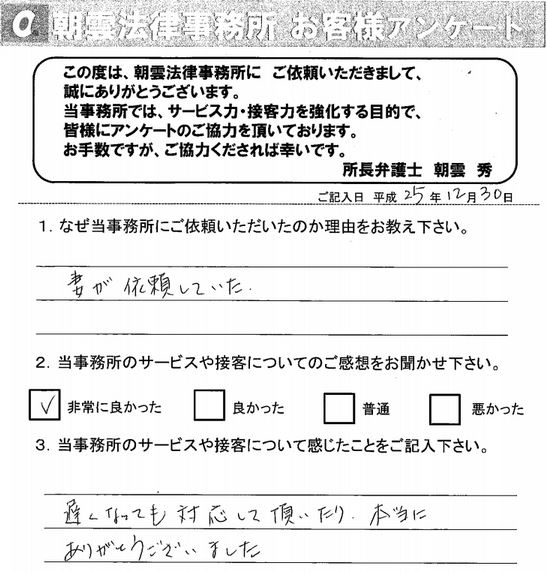 朝雲法律事務所 お客様アンケート
この度は、朝雲法律事務所に ご依頼いただきまして、
誠にありがとうございます。
当事務所では、サービス力・接客力を強化する目的で、
皆様にアンケートのご協力を頂いております。
お手数ですが、ご協力くだされば幸いです。
所長弁護士 朝雲 秀
ご記入日 平成 25 年 12 月 30 日
1. なぜ当事務所にご依頼いただいたのか理由をお教え下さい。
妻が 依頼していた.
2. 当事務所のサービスや接客についてのご感想をお聞かせ下さい。
✓ 非常に良かった 良かった 普通 悪かった
3. 当事務所のサービスや接客について感じたことをご記入下さい。
遅くなっても 対応して 頂いたり. 本当に
ありがとうございました